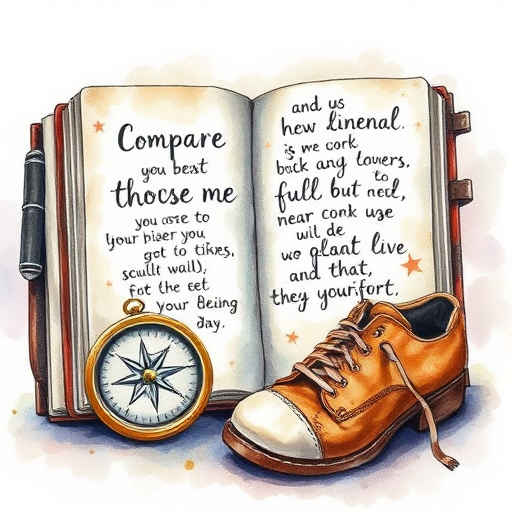 Compare
you best
thocse me
you ose to
your biäer you
got to tikes,
scullt wall),
fot the eet
your Being
day.
and us
hew linenal.
is we cork
back ang lawers,
to
full but need,
near conk use
will de
we glant live
and that,
they yourifort.